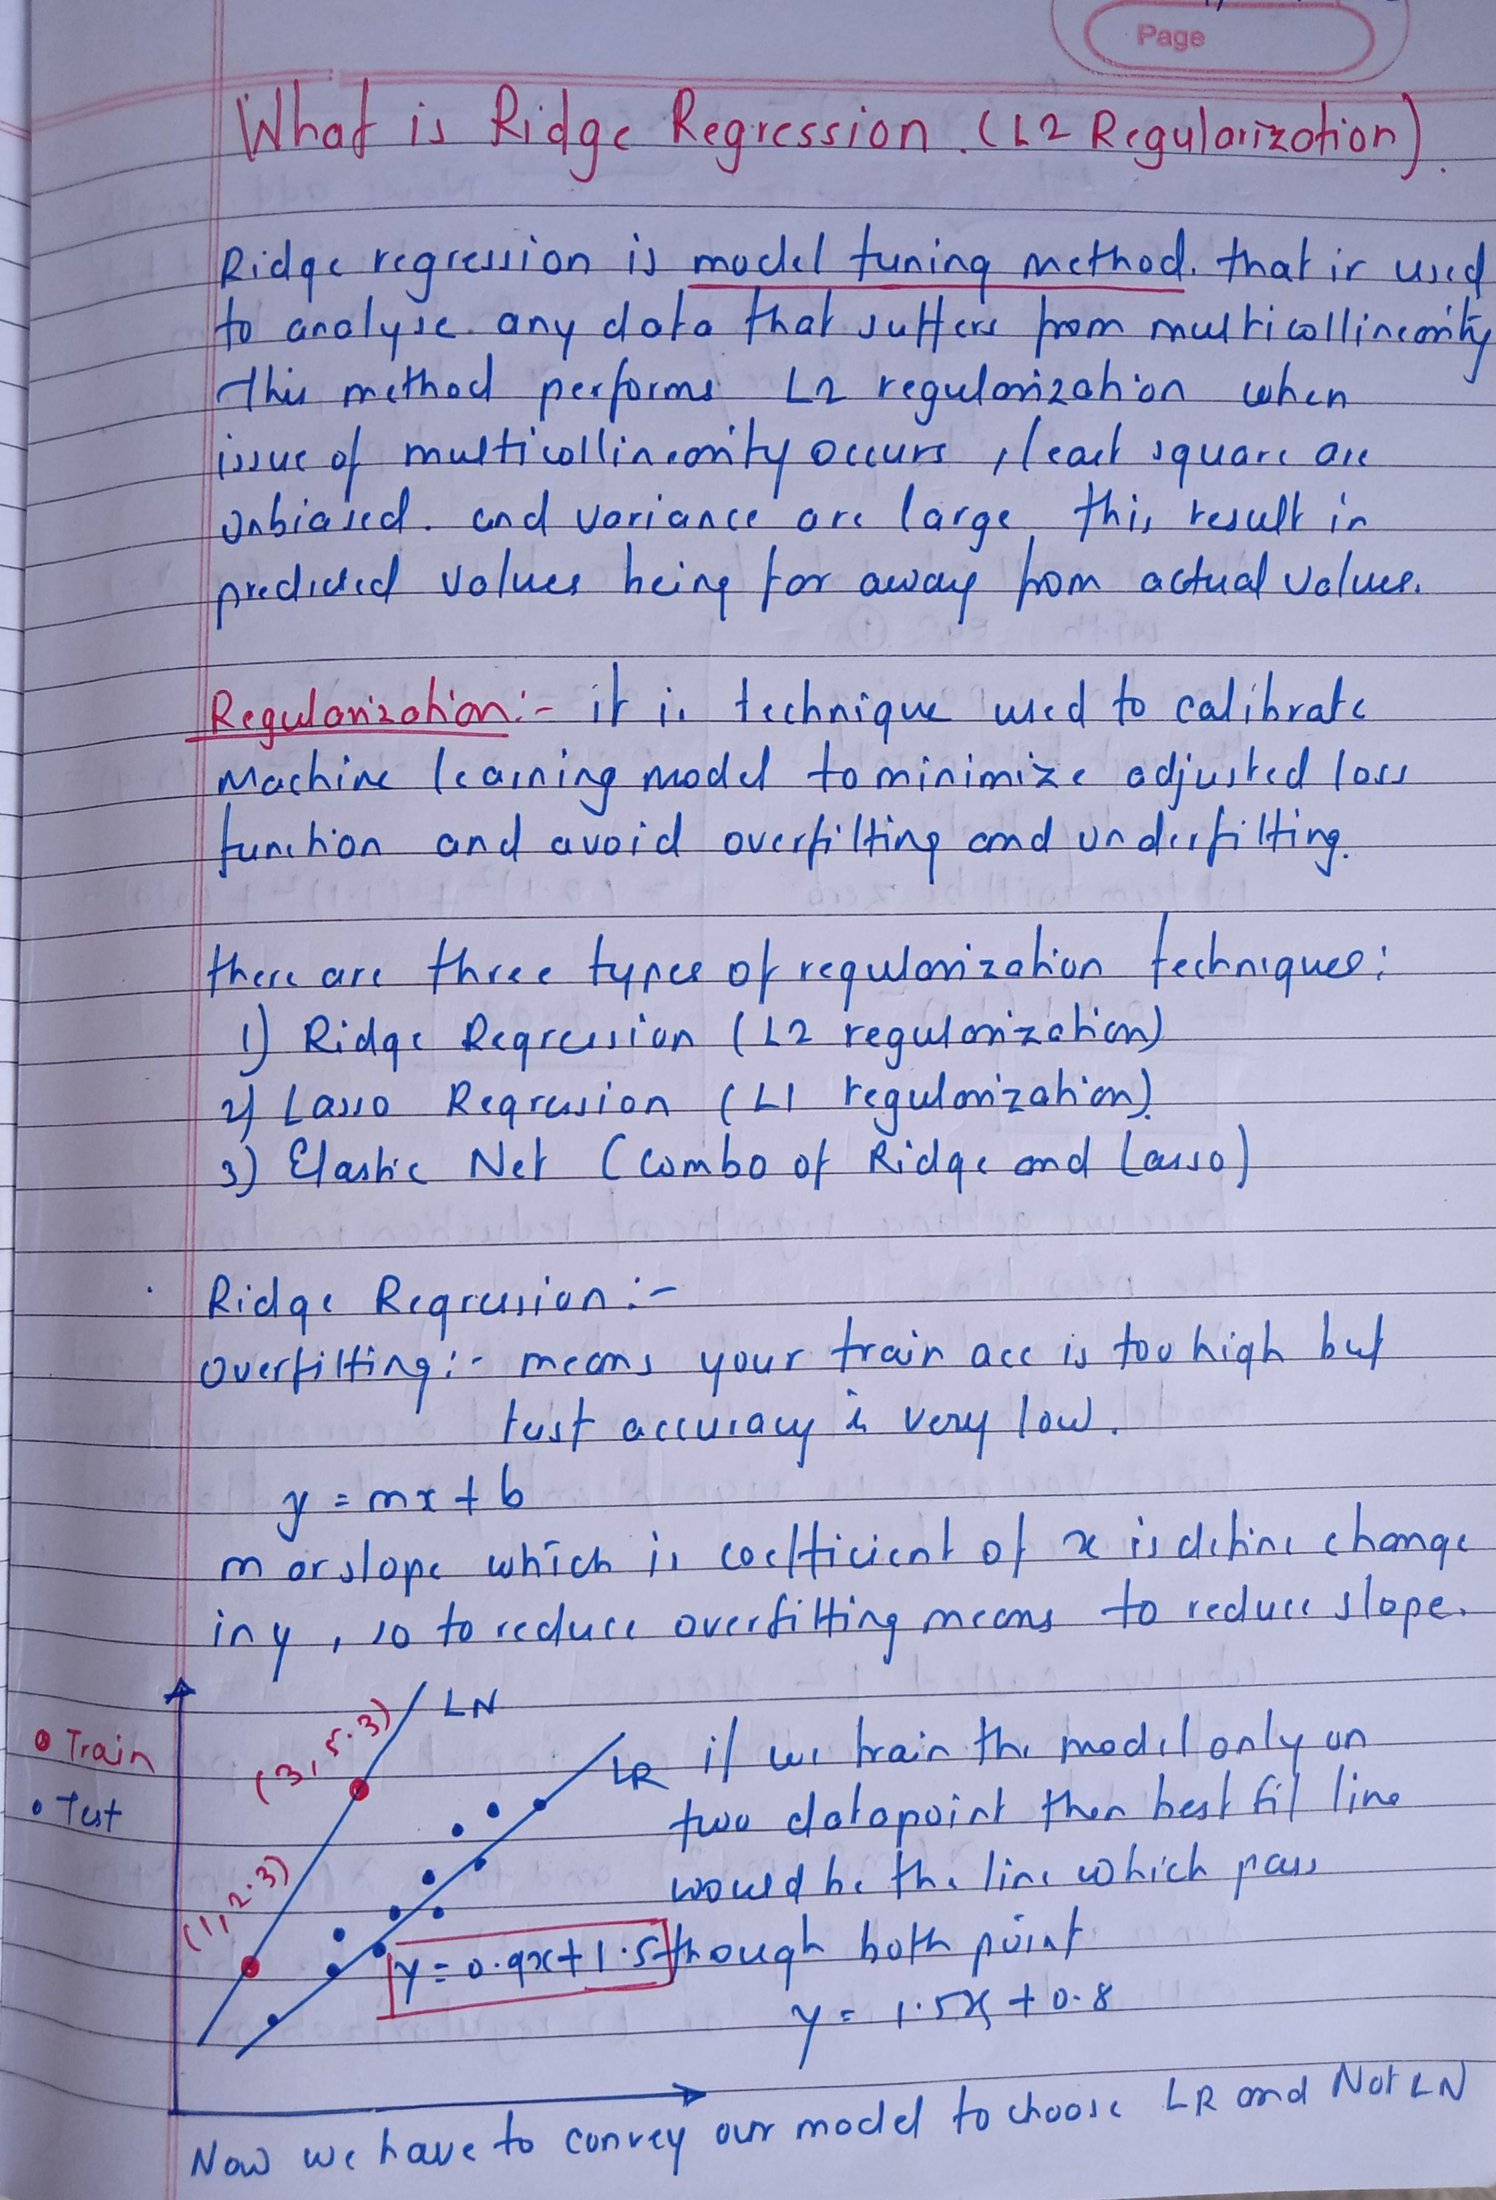 Page
What is Ridge Regression. (L2 Regularization).
Ridge regression is model tuning method. that is used
to analyse any data that suffers from multicollinearity
This method performs L2 regularization when
issue of multicollinearity occurs, least square are
unbiased. and variance are large, this result in
predicted values being far away from actual values.
Regularization:- it is technique used to calibrate
Machine learning model to minimize adjusted loss
function and avoid overfitting and underfitting.
there are three types of regularization techniques:
1) Ridge Regression (L2 regularization)
2) Lasso Regression (L1 regularization)
3) Elastic Net (Combo of Ridge and Lasso)
Ridge Regression:-
overfitting:- means your train acc is too high but
test accuracy is very low.
y = mx + b
m or slope which is coefficient of x is define change
in y, so to reduce overfitting means to reduce slope.
Train
Test
(3, 5.3)
LN
(1, 2.3)
LR
y = 0.9x + 1.5
if we train the model only on
two datapoint then best fit line
would be the line which pass
though both point
y = 1.5x + 0.8
Now we have to convey our model to choose LR and Not LN